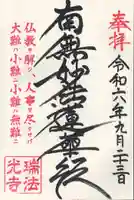 奉拝
令和六年九月二十三日
南無妙法蓮華経
仏教ヲ解シ人事ヲ尽セバ
大難ハ小難ニ小難ハ無難ニ
瑞法
光寺